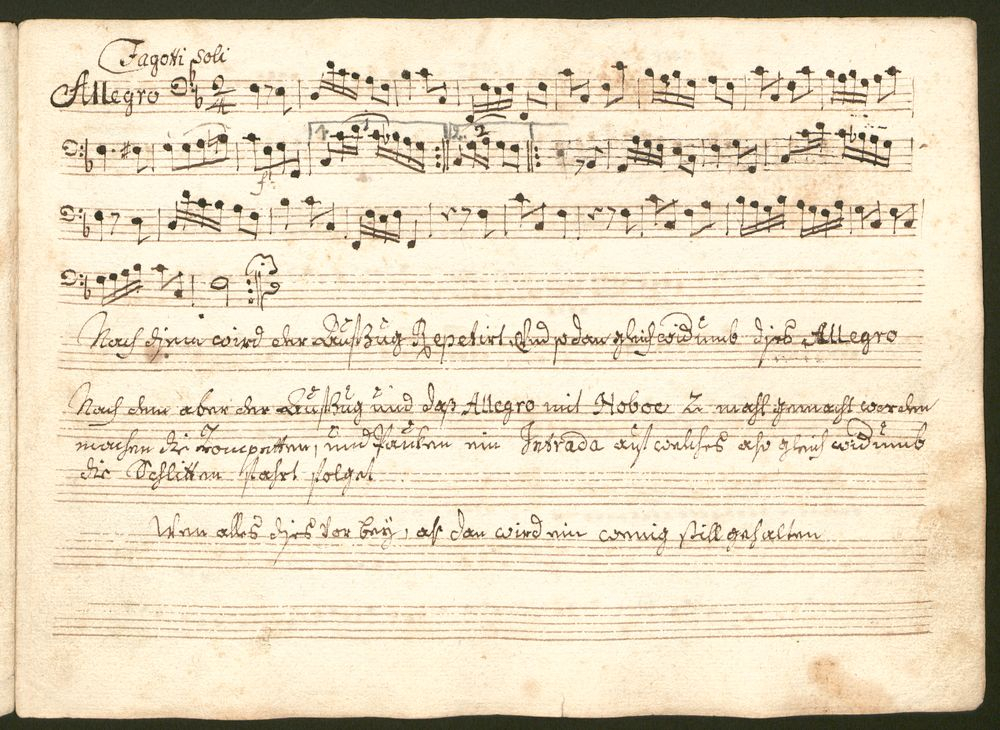 Fagotti Soli
Allegro 2/4
f:
1. 2.
Nach disem wird der Aufzug Repetirt Und so dan gleich widrumb dises Allegro
Nach dem aber der Aufzug und das Allegro mit Hoboe 2 mahl gemacht worden,
machen die Trompetten, und Paucken ein Intrada auf welches also gleich widrumb
die Schlitten fahrt folget
Wen alles dises Vorbey, als dan wird ein wenig still gehalten